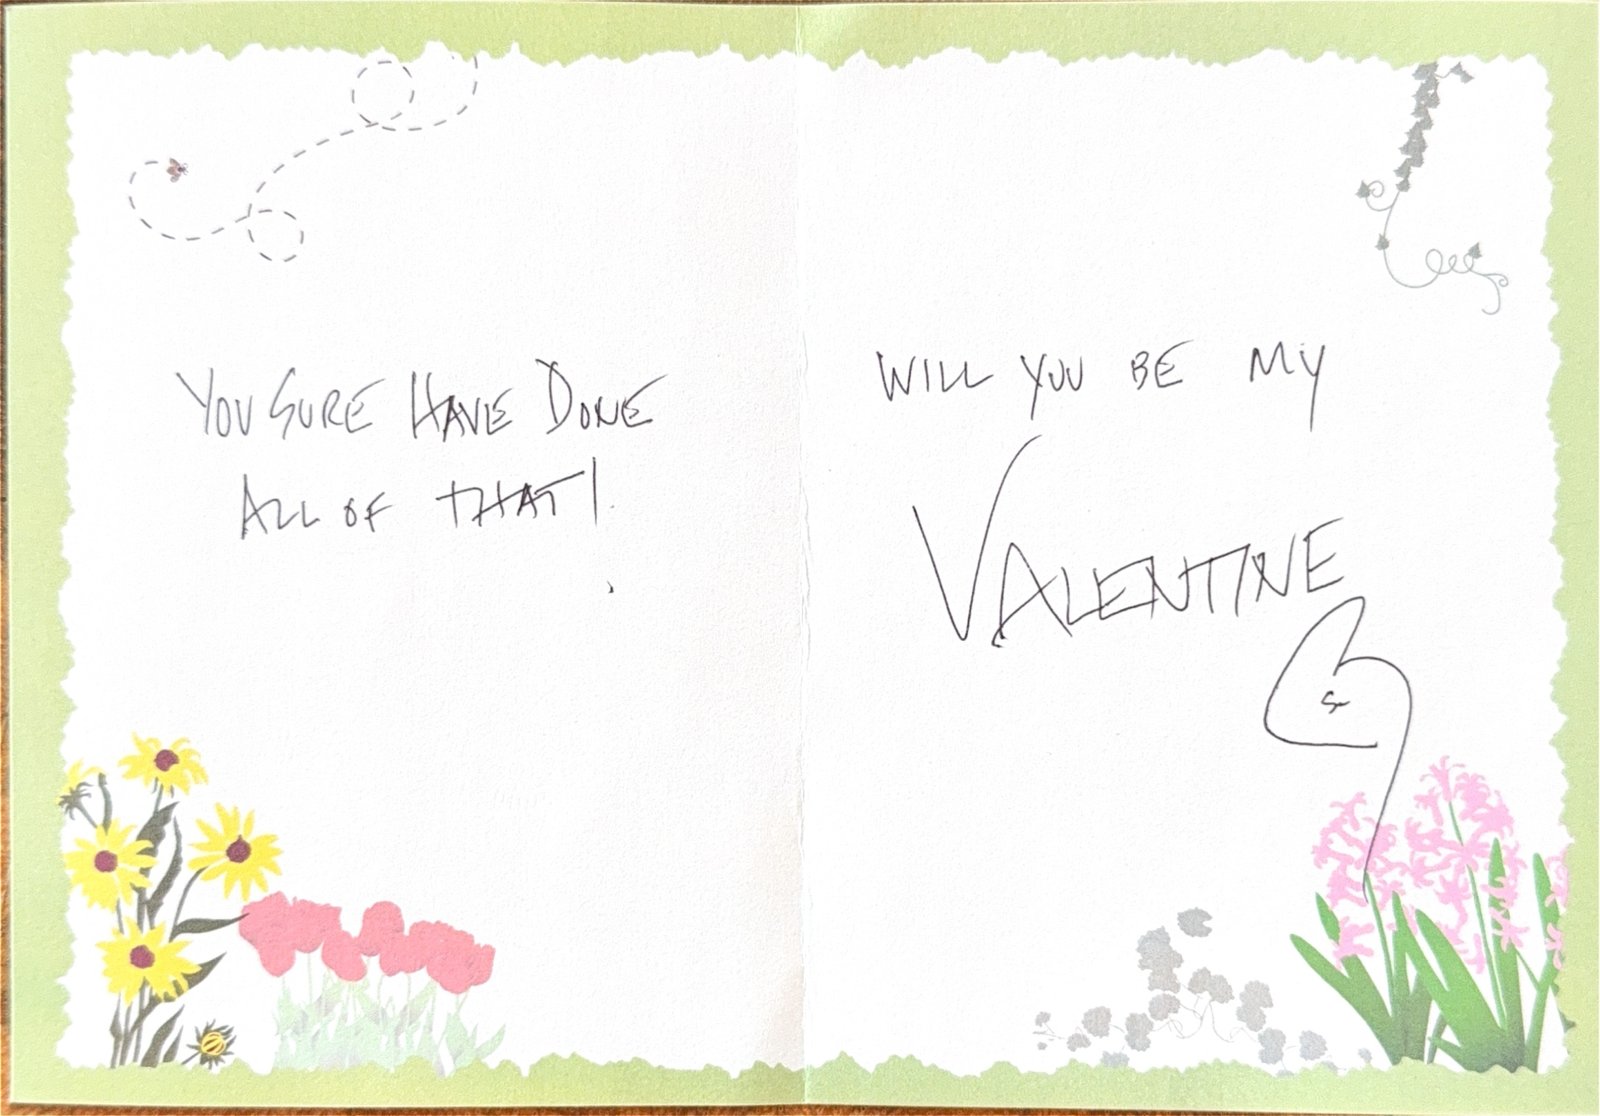 YOU SURE HAVE DONE
ALL OF THAT!
WILL YOU BE MY
VALENTINE